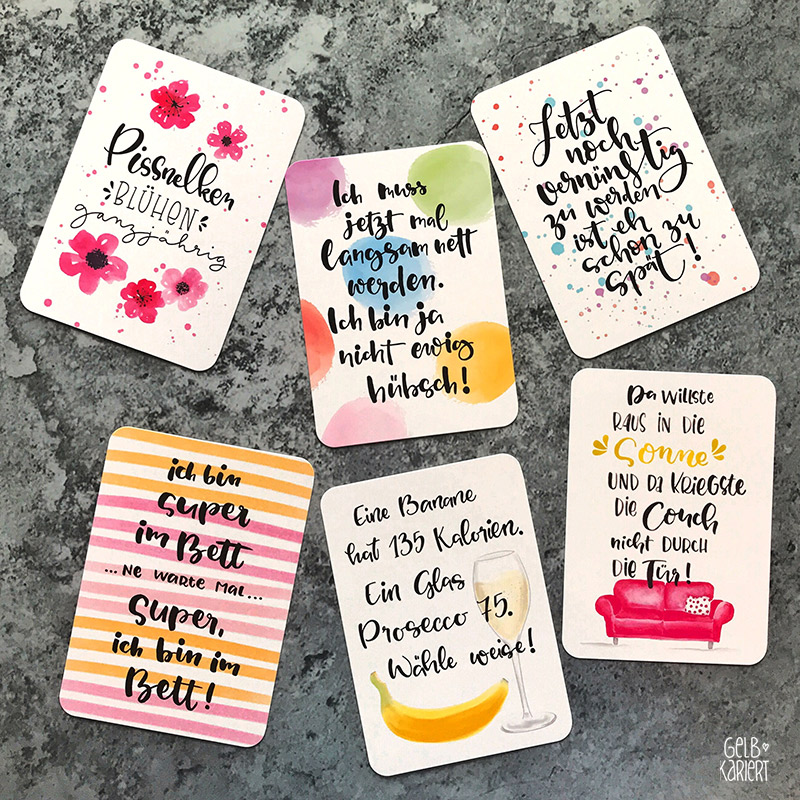 Pissnelken
BLÜHEN
ganzjährig
Ich muss
jetzt mal
langsam nett
werden.
Ich bin ja
nicht ewig
hübsch!
Jetzt
noch
vernünftig
zu werden
ist eh
schon zu
spät!
ich bin
super
im Bett
...NE WARTE MAL...
Super,
ich bin im
Bett!
Eine Banane
hat 135 Kalorien.
Ein Glas
Prosecco 75.
Wähle weise!
Da willste
RAUS IN DIE
Sonne
UND DA KRIEGSTE
DIE Couch
nicht DURCH
DIE Tür!
GELB
KARIERT